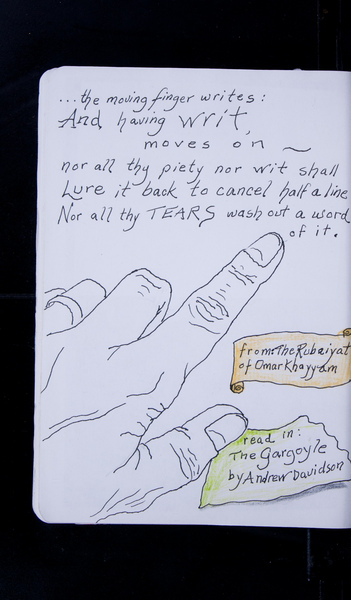 ...the moving finger writes:
And having writ,
moves on
nor all thy piety nor wit shall
Lure it back to cancel half a line
Nor all thy TEARS wash out a word
of it.
from: The Rubaiyat
of Omar Khayyam
read in:
The Gargoyle
by Andrew Davidson